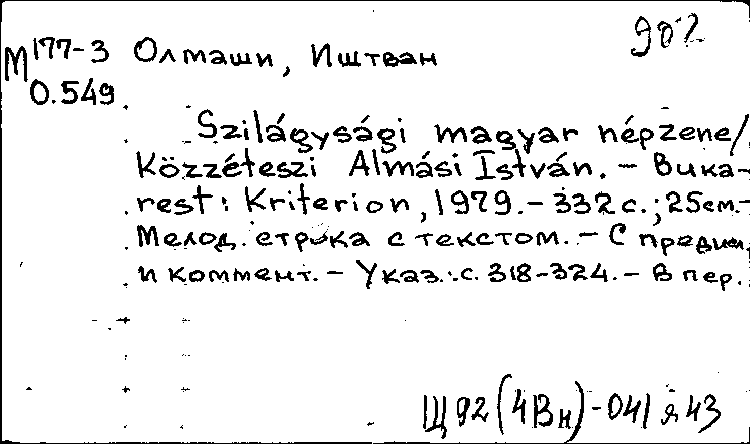 902
М177-3 Олмаши, Иштван
0.549
Szilágysági magyar népzene/
Közzéteszi Almási István. - Buka-
rest: Kriterion, 1979. - 332 с.; 25см. -
Мелод. строка с текстом. - С предисл.
и коммент. - Указ.: с. 318-324. - В пер.
Щ92(4Вн)-041я43